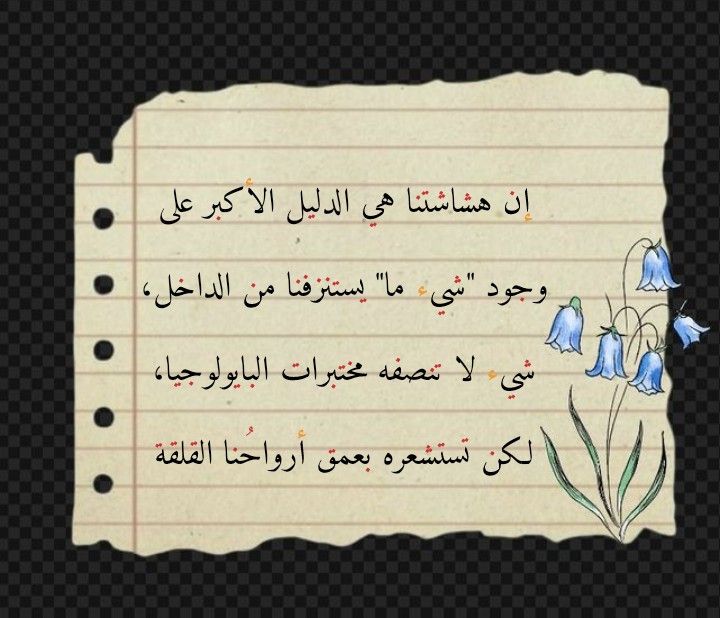 إن هشاشتنا هي الدليل الأكبر على
وجود "شيء ما" يستنزفنا من الداخل،
شيء لا تنصفه مختبرات البايولوجيا،
لكن تستشعره بعمق أرواحُنا القلقة